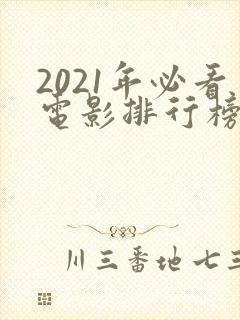 2021年必看
电影排行榜
川三番地七三